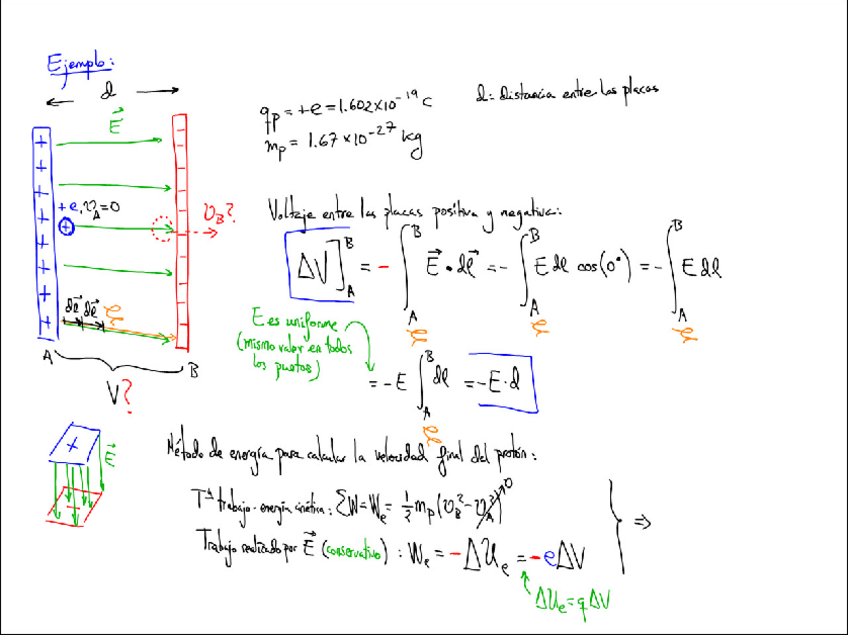 Ejemplo:
d
E⃗
qp = +e = 1.602×10⁻¹⁹ C
d: distancia entre las placas
mp = 1.67×10⁻²⁷ kg
+e, v_A=0
v_B?
Voltaje entre las placas positiva y negativa:
ΔV]_A^B = -∫_A^B E⃗ • dℓ⃗ = -∫_A^B E dℓ cos(0°) = -∫_A^B E dℓ
dℓ⃗ dℓ⃗
E es uniforme
(mismo valor en todos
los puntos)
A B
V?
= -E ∫_A^B dℓ = -E·d
+
E⃗
Método de energía para calcular la velocidad final del protón:
Tᵃ trabajo-energía cinética: ΣW = We = ½ mp (v_B² - v_A²) 0
Trabajo realizado por E⃗ (conservativo): We = -ΔUe = -eΔV
⇒
ΔUe = qΔV